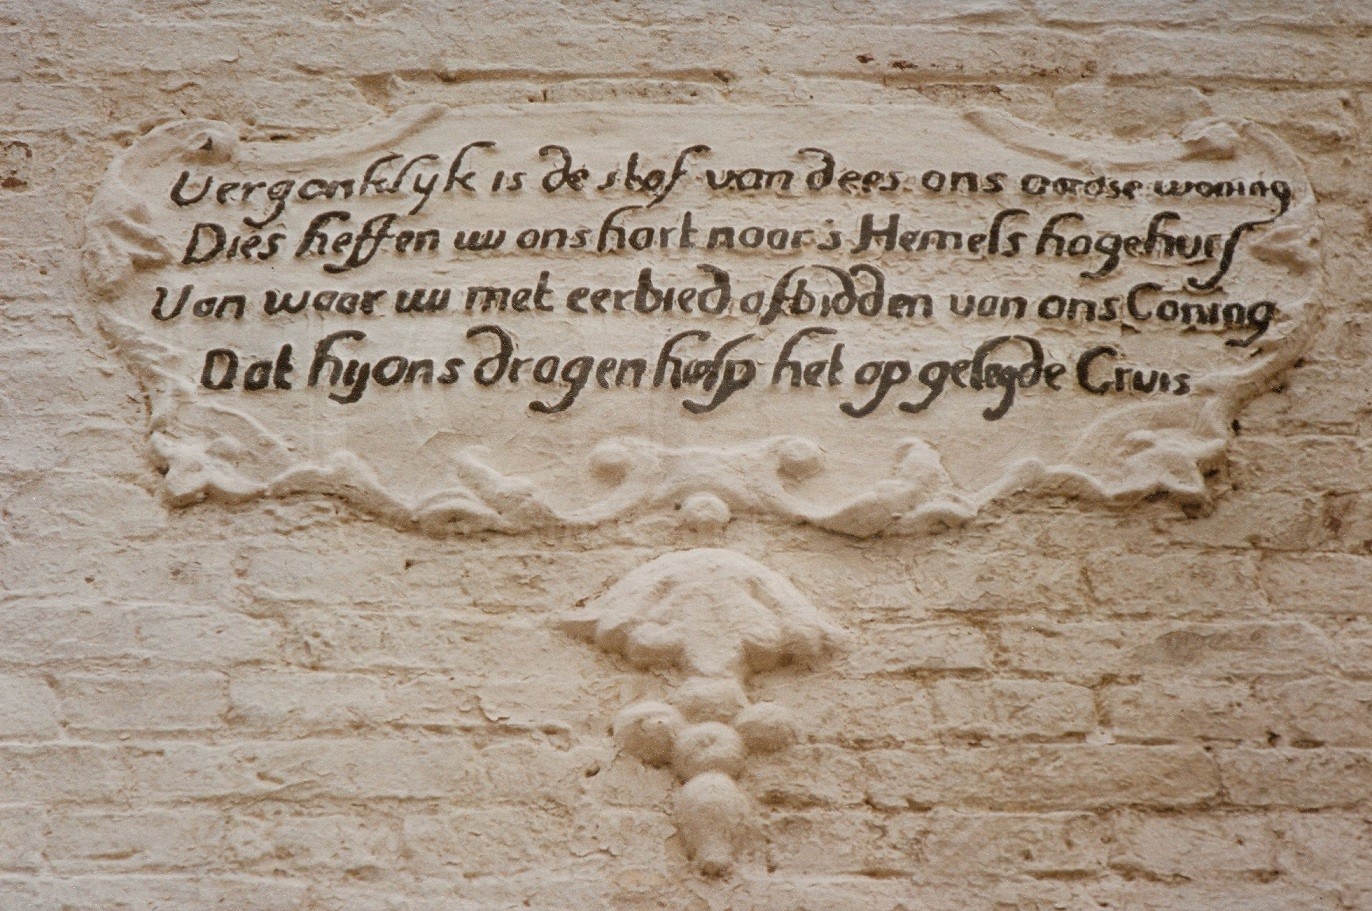 Verganklyk is de stof van dees ons aardse woning
Dies heffen wy ons hart naar 's Hemels hogehuis
Van waar wy met eerbied afbidden van ons Coning
Dat hy ons dragen help het op gelegde Cruis